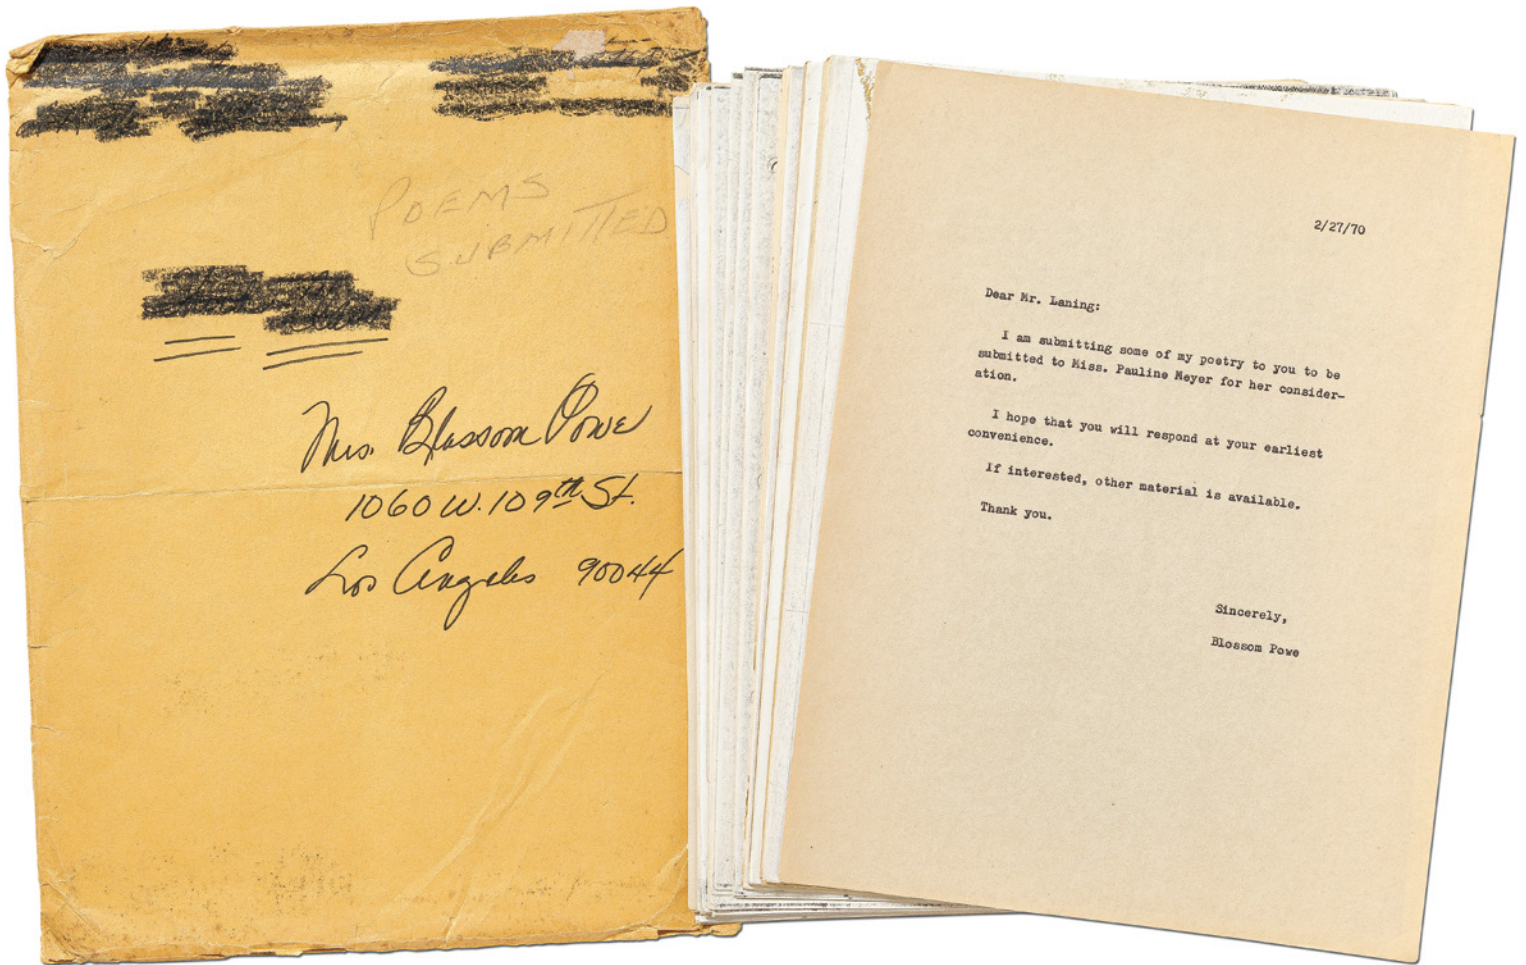 POEMS
SUBMITTED
Mrs. Blossom Powe
1060 W. 109th St.
Los Angeles 90044
2/27/70
Dear Mr. Laning:
I am submitting some of my poetry to you to be
submitted to Miss. Pauline Meyer for her consider-
ation.
I hope that you will respond at your earliest
convenience.
If interested, other material is available.
Thank you.
Sincerely,
Blossom Powe